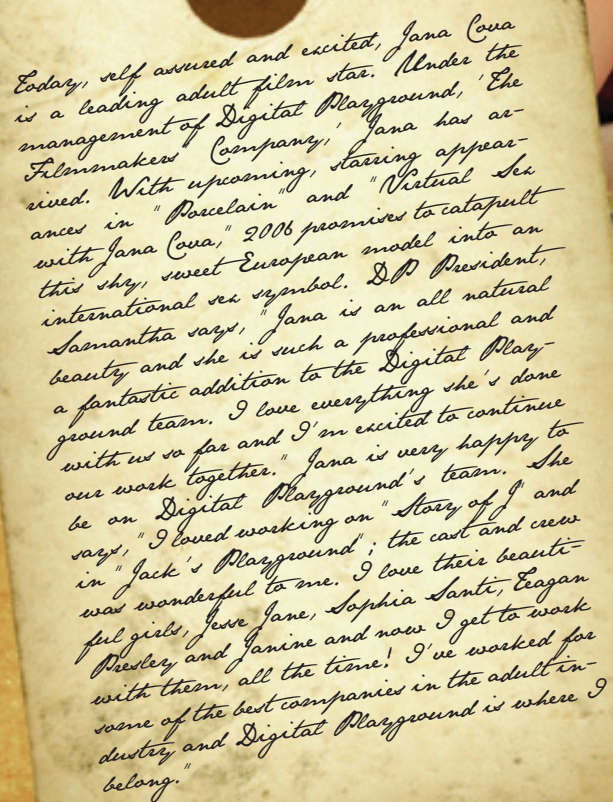 Today, self assured and excited, Jana Cova
is a leading adult film star. Under the
management of Digital Playground, 'The
Filmmakers' Company,' Jana has ar-
rived. With upcoming, starring appear-
ances in "Porcelain" and "Virtual Sex
with Jana Cova," 2006 promises to catapult
this shy, sweet European model into an
international sex symbol. DP President,
Samantha says, "Jana is an all natural
beauty and she is such a professional and
a fantastic addition to the Digital Play-
ground team. I love everything she's done
with us so far and I'm excited to continue
our work together." Jana is very happy to
be on Digital Playground's team. She
says, "I loved working on "Story of J" and
in "Jack's Playground"; the cast and crew
was wonderful to me. I love their beauti-
ful girls, Jesse Jane, Sophia Santi, Teagan
Presley and Janine and now I get to work
with them, all the time! I've worked for
some of the best companies in the adult in-
dustry and Digital Playground is where I
belong."